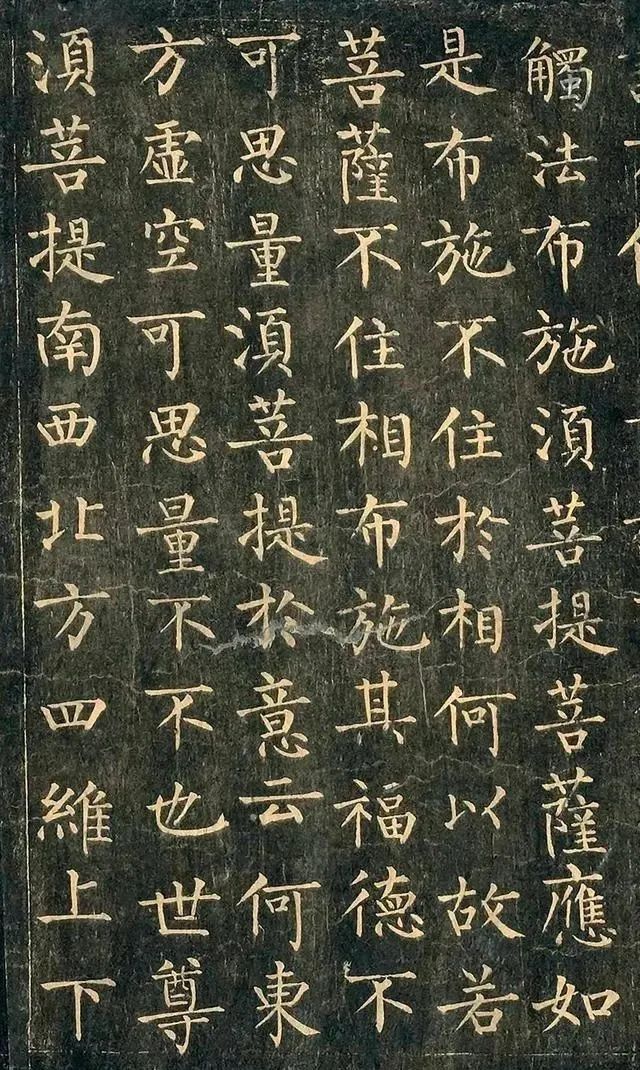 觸法布施須菩提菩薩應如
是布施不住於相何以故若
菩薩不住相布施其福德不
可思量須菩提於意云何東
方虛空可思量不不也世尊
須菩提南西北方四維上下